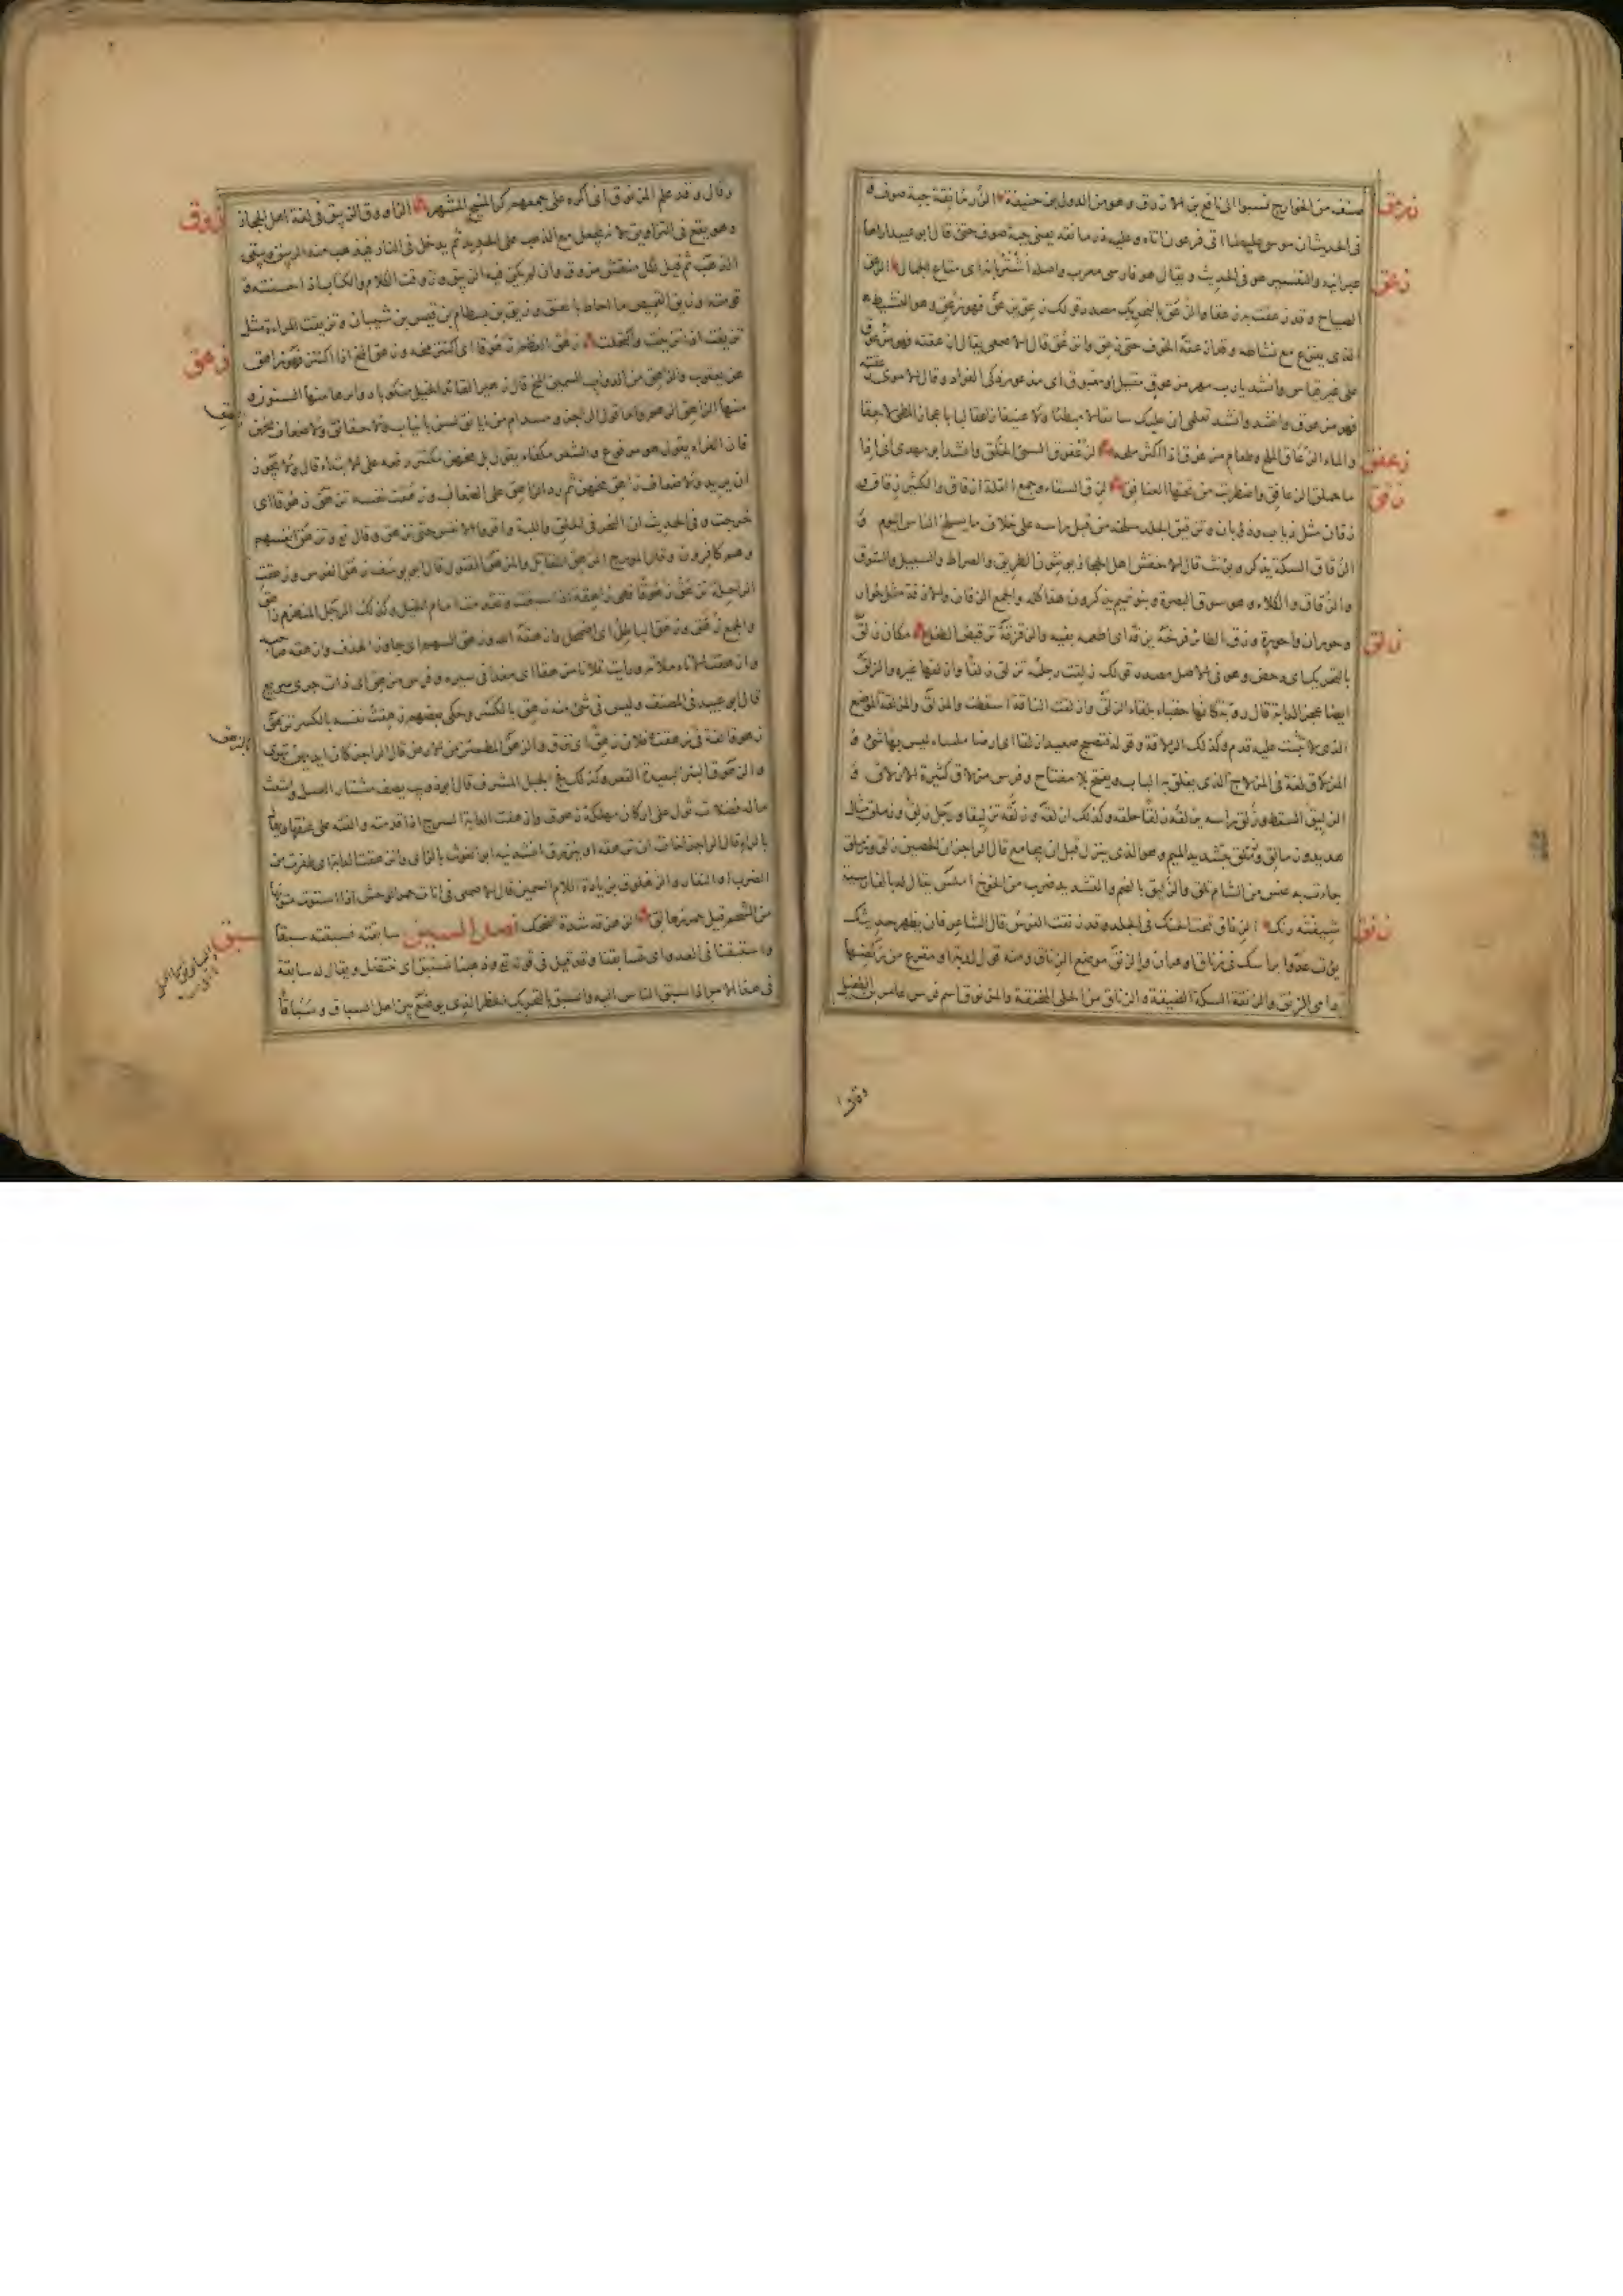 صنف من الخوارج نسبوا الى نافع بن الازرق وهو من الدول بن حنيفة الزرمانقة جبة صوف و
فى الحديث ان موسى عليه لما اتى فرعون اتاه وعليه زرمانقة يعنى جبة صوف قال ابو عبيد اراها
عبرانية والتفسير هو فى الحديث ويقال هو فارسى معرب واصله اشتربانه اى متاع الجمال الزعق
الصياح وقد زعقت به زعقا والزعق بالتحريك مصدر قولك زعق يزعق فهو زعق وهو النشيط
الذى يفزع مع نشاطه وقد ازعقه الخوف حتى زعق وانزعق قال الاصمعى يقال ازعقته فهو مزعوق
على غير قياس وانشد يارب مهر مزعوق مقيل او مغبوق اى مذعور ذكى الفواد وقال الاموى زعقته
فهو مزعوق وانشد تعلمى ان عليك سائقا لا مبطئا ولا عنيفا زاعقا لبا باعجاز المطى لاحقا
والماء الزعاق الملح وطعام مزعوق اذا اكثر ملحه الزعفوق السيئ الخلق وانشد ابو مهدى
الزق السقاء وجمع القلة ازقاق والكثير زقاق و
زقان مثل ذياب وذوبان وتزقيق الجلد سلخه من قبل راسه على خلاف ما يسلخ الناس اليوم و
الزقاق السكة يذكر ويؤنث قال الاخفش اهل الحجاز يؤنثون الطريق والصراط والسبيل والسوق
والزقاق والكلاء وهو سوق البصرة وبنو تميم يذكرون هذا كله والجمع الزقان والازقة مثل حوار
وحوران واحورة وزق الطائر فرخه يزقه اى اطعمه بفيه والزقزقة ترقيص الطفل مكان زلق
بالتحريك اى دحض وهو فى الاصل مصدر قولك زلقت رجله تزلق زلقا وازلقها غيره والزلق
ايضا عجز الدابة قال رؤبة كانها حقباء بلقاء الزلق وازلقت الناقة اسقطت والمزلق والمزلقة الموضع
الذى لا يثبت عليه قدم وكذلك الزلاقة وقوله فتصبح صعيدا زلقا اى ارضا ملساء ليس بها شئ و
المزلاق لغة فى المزلاج الذى يغلق به الباب ويفتح بلا مفتاح وفرس مزلاق كثيرة الازلاق و
الزليق السقط وزلق راسه يزلقه زلقا حلقه وكذلك ازلقه وزلقه تزليقا ورجل زلق وزملق مثال
هدبد وزمالق وزملق بتشديد الميم وهو الذى ينزل قبل ان يجامع قال الراجز ان الحصين زلق وزملق
جاءت به عنس من الشام تلق والزليق بالضم والتشديد ضرب من الخوخ املس يقال له بالفارسية
شيفته رنك الزناق تحت الحنك فى الجلد وقد زنقت الفرس قال الشاعر فان يظهر حديثك
يؤت عدوا براسك فى زناق او عران والزنق موضع الزناق ومنه قول رؤبة او مقرع من ركضها
دامى الزنق والزنقة السكة الضيقة والزناق من الحلى المخنقة والمزنوق اسم فرس عامر بن الطفيل
وقال
زرمق
زعق
زعفق
زقق
زلق
زنق
وقال وقد علم المزنوق انى اكره على جمعهم كر المنيح المشهر الزاووق الزيبق فى لغة اهل الحجاز
وهو يقع فى التزاويق لانه يجعل مع الذهب على الحديد ثم يدخل فى النار فيذهب منه الزيبق ويبقى
الذهب ثم قيل لكل منقش مزوق وان لم يكن فيه الزيبق وزوقت الكلام والكتاب اذا حسنته و
قومته وزيق القميص ما احاط بالعنق وزيق بن بسطام بن قيس بن شيبان وتزيقت المراة مثل
تزيغت اذا تزينت واكتحلت زهق العظم زهوقا اى اكتنز مخه وزهق المخ اذا اكتنز فهو زاهق
عن يعقوب والزاهق من الدواب السمين المخ قال زهير القائد الخيل منكوبا دوابرها منها الشنون و
منها الزاهق الزهم واما قول الراجز
قال الفراء يقول هو مرفوع والشعر مكفأ يقول بل مخهن مكتنز رفعه على الابتداء قال ولا يجوز
ان يريد ولا ضعاف زاهق مخهن ثم رد الزاهق على الضعاف وزهقت نفسه تزهق زهوقا اى
خرجت وفى الحديث ان النحر فى الحلق واللبة واقروا الانفس حتى تزهق وقال تع وتزهق انفسهم
وهم كافرون وقال المورج المزهق القاتل والمزهق المقتول قال ابو يوسف زهق الفرس وزهقت
الراحلة تزهق زهوقا فهى زاهقة اذا سبقت وتقدمت امام الخيل وكذلك الرجل المنهزم زاهق
والجمع زهق وزهق الباطل اى اضمحل وازهقه الله وزهق السهم اى جاوز الهدف وازهقه صاحبه
وازهقت الاناء ملاته ورايت فلانا مزهقا اى مغذا فى سيره وفرس مزهق اى ذات جرى سريع
قال ابو عبيد فى المصنف وليس فى شئ منه زهق بالكسر وحكى بعضهم زهقت نفسه بالكسر تزهق
زهوقا لغة فى زهقت وفلان زهق اى نزق والزهق المطمئن من الارض قال الراجز كان ايديهن تهوى
والزهوق البئر البعيدة القعر وكذلك فج الجبل المشرف قال ابو ذويب يصف مشتار العسل واشعث
ماله فضلات ثول على اركان مهلكة زهوق وازهقت الدابة السرج اذا قدمته والقته على عنقها ويقال
بالراء قال الراجز اخاف ان تزهقه او ينزرق انشدنيه ابو الغوث بالزاى وانزهقت الدابة اى طفرت من
الضرب او النفار والزهلوق بزيادة اللام السمين قال الاصمعى فى اناث حمر الوحش اذا استوت متونها
من الشحم قيل حمر زهالق الزهزقة شدة الضحك فصل السين سابقته فسبقته سبقا
واستبقنا فى العدو اى تسابقنا وقد قيل فى قوله تع ذهبنا نستبق اى ننتضل ويقال له سابقة
فى هذا الامر اذا سبق الناس اليه والسبق بالتحريك الخطر الذى يوضع بين اهل السباق وسباقا
زوق
زهق
بالزهق
سبق